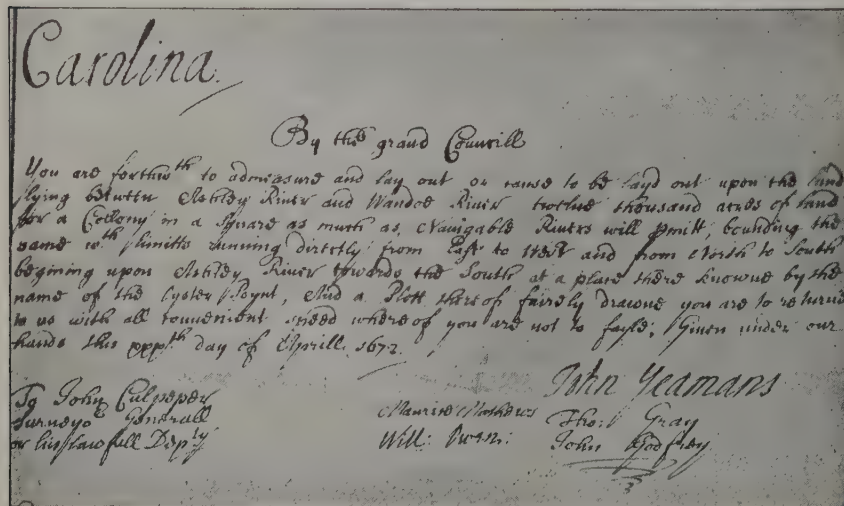 Carolina.
By the grand Councill
You are forthwth to admeasure and lay out or cause to be layd out upon the land
lying betwen Ashley River and Wandoe River twelve thousand acres of land
for a Collony in a Square as much as Navigable Rivers will pmitt, bounding the
same wth limitts running directly from East to West and from North to South
begining upon Ashley River towards the South at a place there knowne by the
name of the Oyster Poynt, And a Plott thereof fairely drawne you are to returne
to us with all convenient speed whereof you are not to fayle; Given under our
hands this day of Aprill 1672.
John Yeamans
To John Culpeper
Surveyor Generall
or his lawfull Depty
Maurice Mathews
Will: Owen:
Tho: Gray
John Godfrey